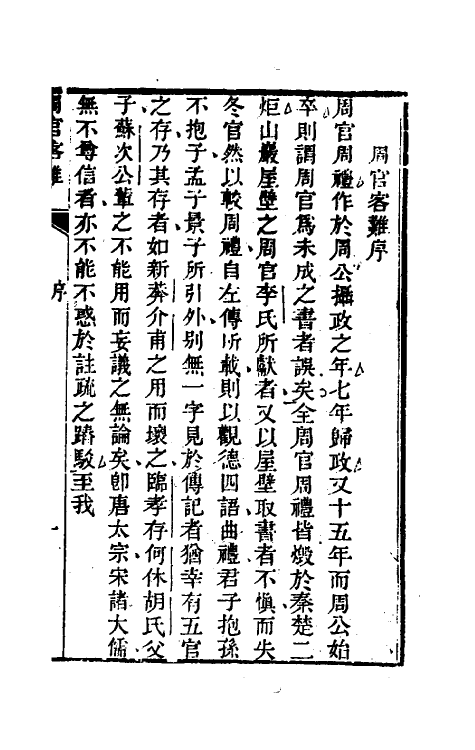 周官客難序
周官周禮作於周公攝政之年七年歸政又十五年而周公始
卒則謂周官爲未成之書者誤矣全周官周禮皆燬於秦楚二
炬山巖屋壁之周官李氏所獻者又以屋壁取書者不愼而失
冬官然以較周禮自左傳所載則以觀德四語曲禮君子抱孫
不抱子孟子景子所引外別無一字見於傳記者猶幸有五官
之存乃其存者如新莽介甫之用而壞之臨孝存何休胡氏父
子蘇次公輩之不能用而妄議之無論矣卽唐太宗宋諸大儒
無不尊信者亦不能不惑於註疏之踳駁至我
周官客難
序
一